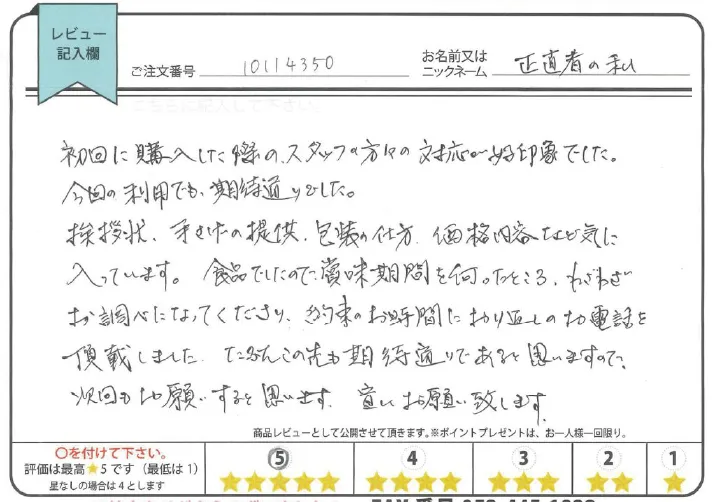 レビュー
記入欄
ご注文番号 10114350
お名前又は
ニックネーム 正直者の私
初回に購入した際の、スタッフの方々の対応が好印象でした。
今回の利用でも、期待通りでした。
挨拶状、手さげの提供、包装の仕方、価格内容など気に
入っています。食品でしたので賞味期間を伺ったところ、わざわざ
お調べになってくださり、約束のお時間に折り返しのお電話を
頂戴しました。たぶんこの先も期待通りであると思いますので、
次回もお願いすると思います。宜しくお願い致します。
商品レビューとして公開させて頂きます。※ポイントプレゼントは、お一人様一回限り。
〇を付けて下さい。
評価は最高★5です（最低は1）
星なしの場合は4とします
5 4 3 2 1